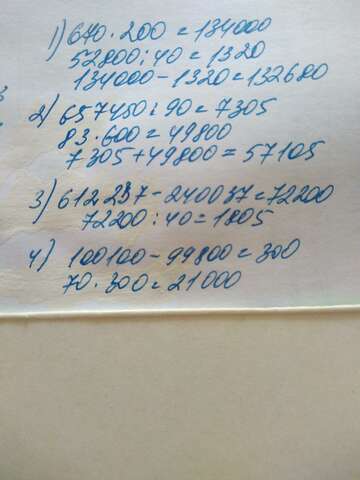 1) 670 · 200 = 134000
52800 : 40 = 1320
134000 - 1320 = 132680
2) 657450 : 90 = 7305
83 · 600 = 49800
7305 + 49800 = 57105
3) 612237 - 240037 = 72200
72200 : 40 = 1805
4) 100100 - 99800 = 300
70 · 300 = 21000